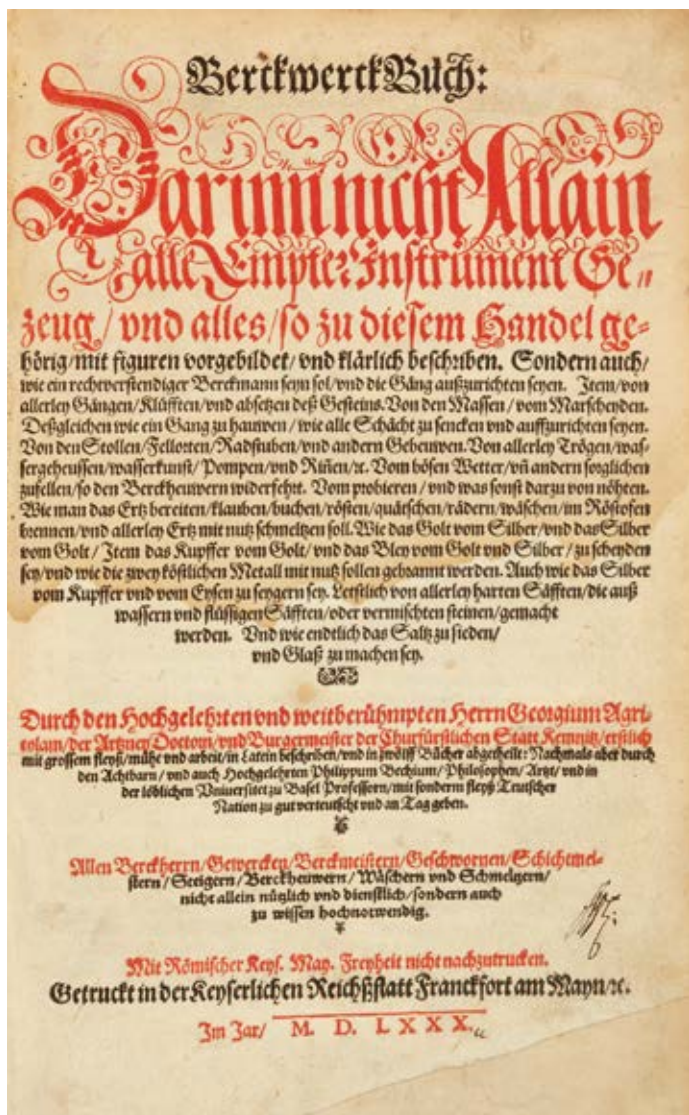 BerckwerckBůch:
Darinn nicht Allain
alle Empter Instrument Ge-
zeug / vnd alles / so zu diesem Handel ge-
hörig / mit figuren vorgebildet / vnd klärlich beschriben. Sondern auch /
wie ein rechtverstendiger Berckmann seyn sol / vnd die Gäng außzurichten seyen. Item / von
allerley Gängen / Klüfften / vnd absetzen deß Gesteins. Von den Massen / vom Marscheyden.
Deßgleichen wie ein Gang zu hauwen / wie alle Schächt zu sencken vnd auffzurichten seyen.
Von den Stollen / Fellorten / Radstuben / vnd andern Gebeuwen. Von allerley Trögen / was-
sergeheussen / wasserkunst / Pompen / vnd Riñen / ꝛc. Vom bösen Wetter / vñ andern sorglichen
zufellen / so den Berckheuwern widerfehrt. Vom probieren / vnd was sonst darzu von nöhten.
Wie man das Ertz bereiten / klauben / buchen / rösten / quätschen / rädern / wäschen / im Röstofen
brennen / vnd allerley Ertz mit nutz schmeltzen soll. Wie das Golt vom Silber / vnd das Silber
vom Golt / Item das Kupffer vom Golt / vnd das Bley vom Golt vnd Silber / zu scheyden
sey / vnd wie die zwey köstlichen Metall mit nutz sollen gebrannt werden. Auch wie das Silber
vom Kupffer vnd vom Eysen zu seygern sey. Letstlich von allerley harten Säfften / die auß
wassern vnd flüssigen Säfften / oder vermischten steinen / gemacht
werden. Vnd wie endtlich das Saltz zu sieden /
vnd Glaß zu machen sey.
Durch den Hochgelehrten vnd weitberühmpten Herrn Georgium Agri-
colam / der Artzney Doctorn / vnd Burgermeister der Churfürstlichen Statt Kemnitz / erstlich
mit grossem fleyß / mühe vnd arbeit / in Latein beschriben / vnd in zwölff Bücher abgetheilt: Nachmals aber durch
den Achtbarn / vnd auch Hochgelehrten Philippum Bechium / Philosophen / Artzt / vnd in
der löblichen Vniuersitet zu Basel Professorn / mit sonderm fleyß Teutscher
Nation zu gut verteutscht vnd an Tag geben.
Allen Berckherrn / Gewercken / Berckmeistern / Geschwornen / Schichtmei-
stern / Steigern / Berckheuwern / Wäschern vnd Schmeltzern /
nicht allein nützlich vnd dienstlich / sondern auch
zu wissen hochnotwendig.
Mit Römischer Keys. May. Freyheit nicht nachzutrucken.
Getruckt in der Keyserlichen Reichßstatt Franckfort am Mayn / ꝛc.
Im Jar / M. D. LXXX.